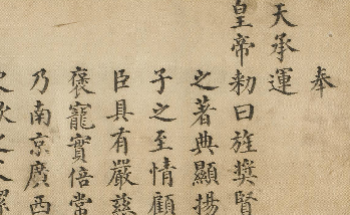 奉
天承運
皇帝勑曰旌奬賢
之著典顯揚
子之至情顧
臣具有嚴慈
褒寵實倍常
乃南京廣西